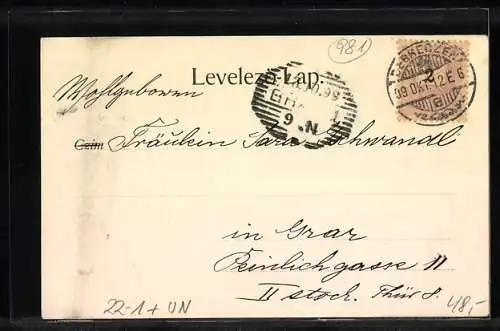 981
Levelező-Lap.
2
99 OKT. 12 E 6
Wohlgeboren
99
9 N
Czim Fräulein Sara Schwandl
in Graz
Peinlichgasse 11
II stock. Thür 8.
22-1 + UN
48,-